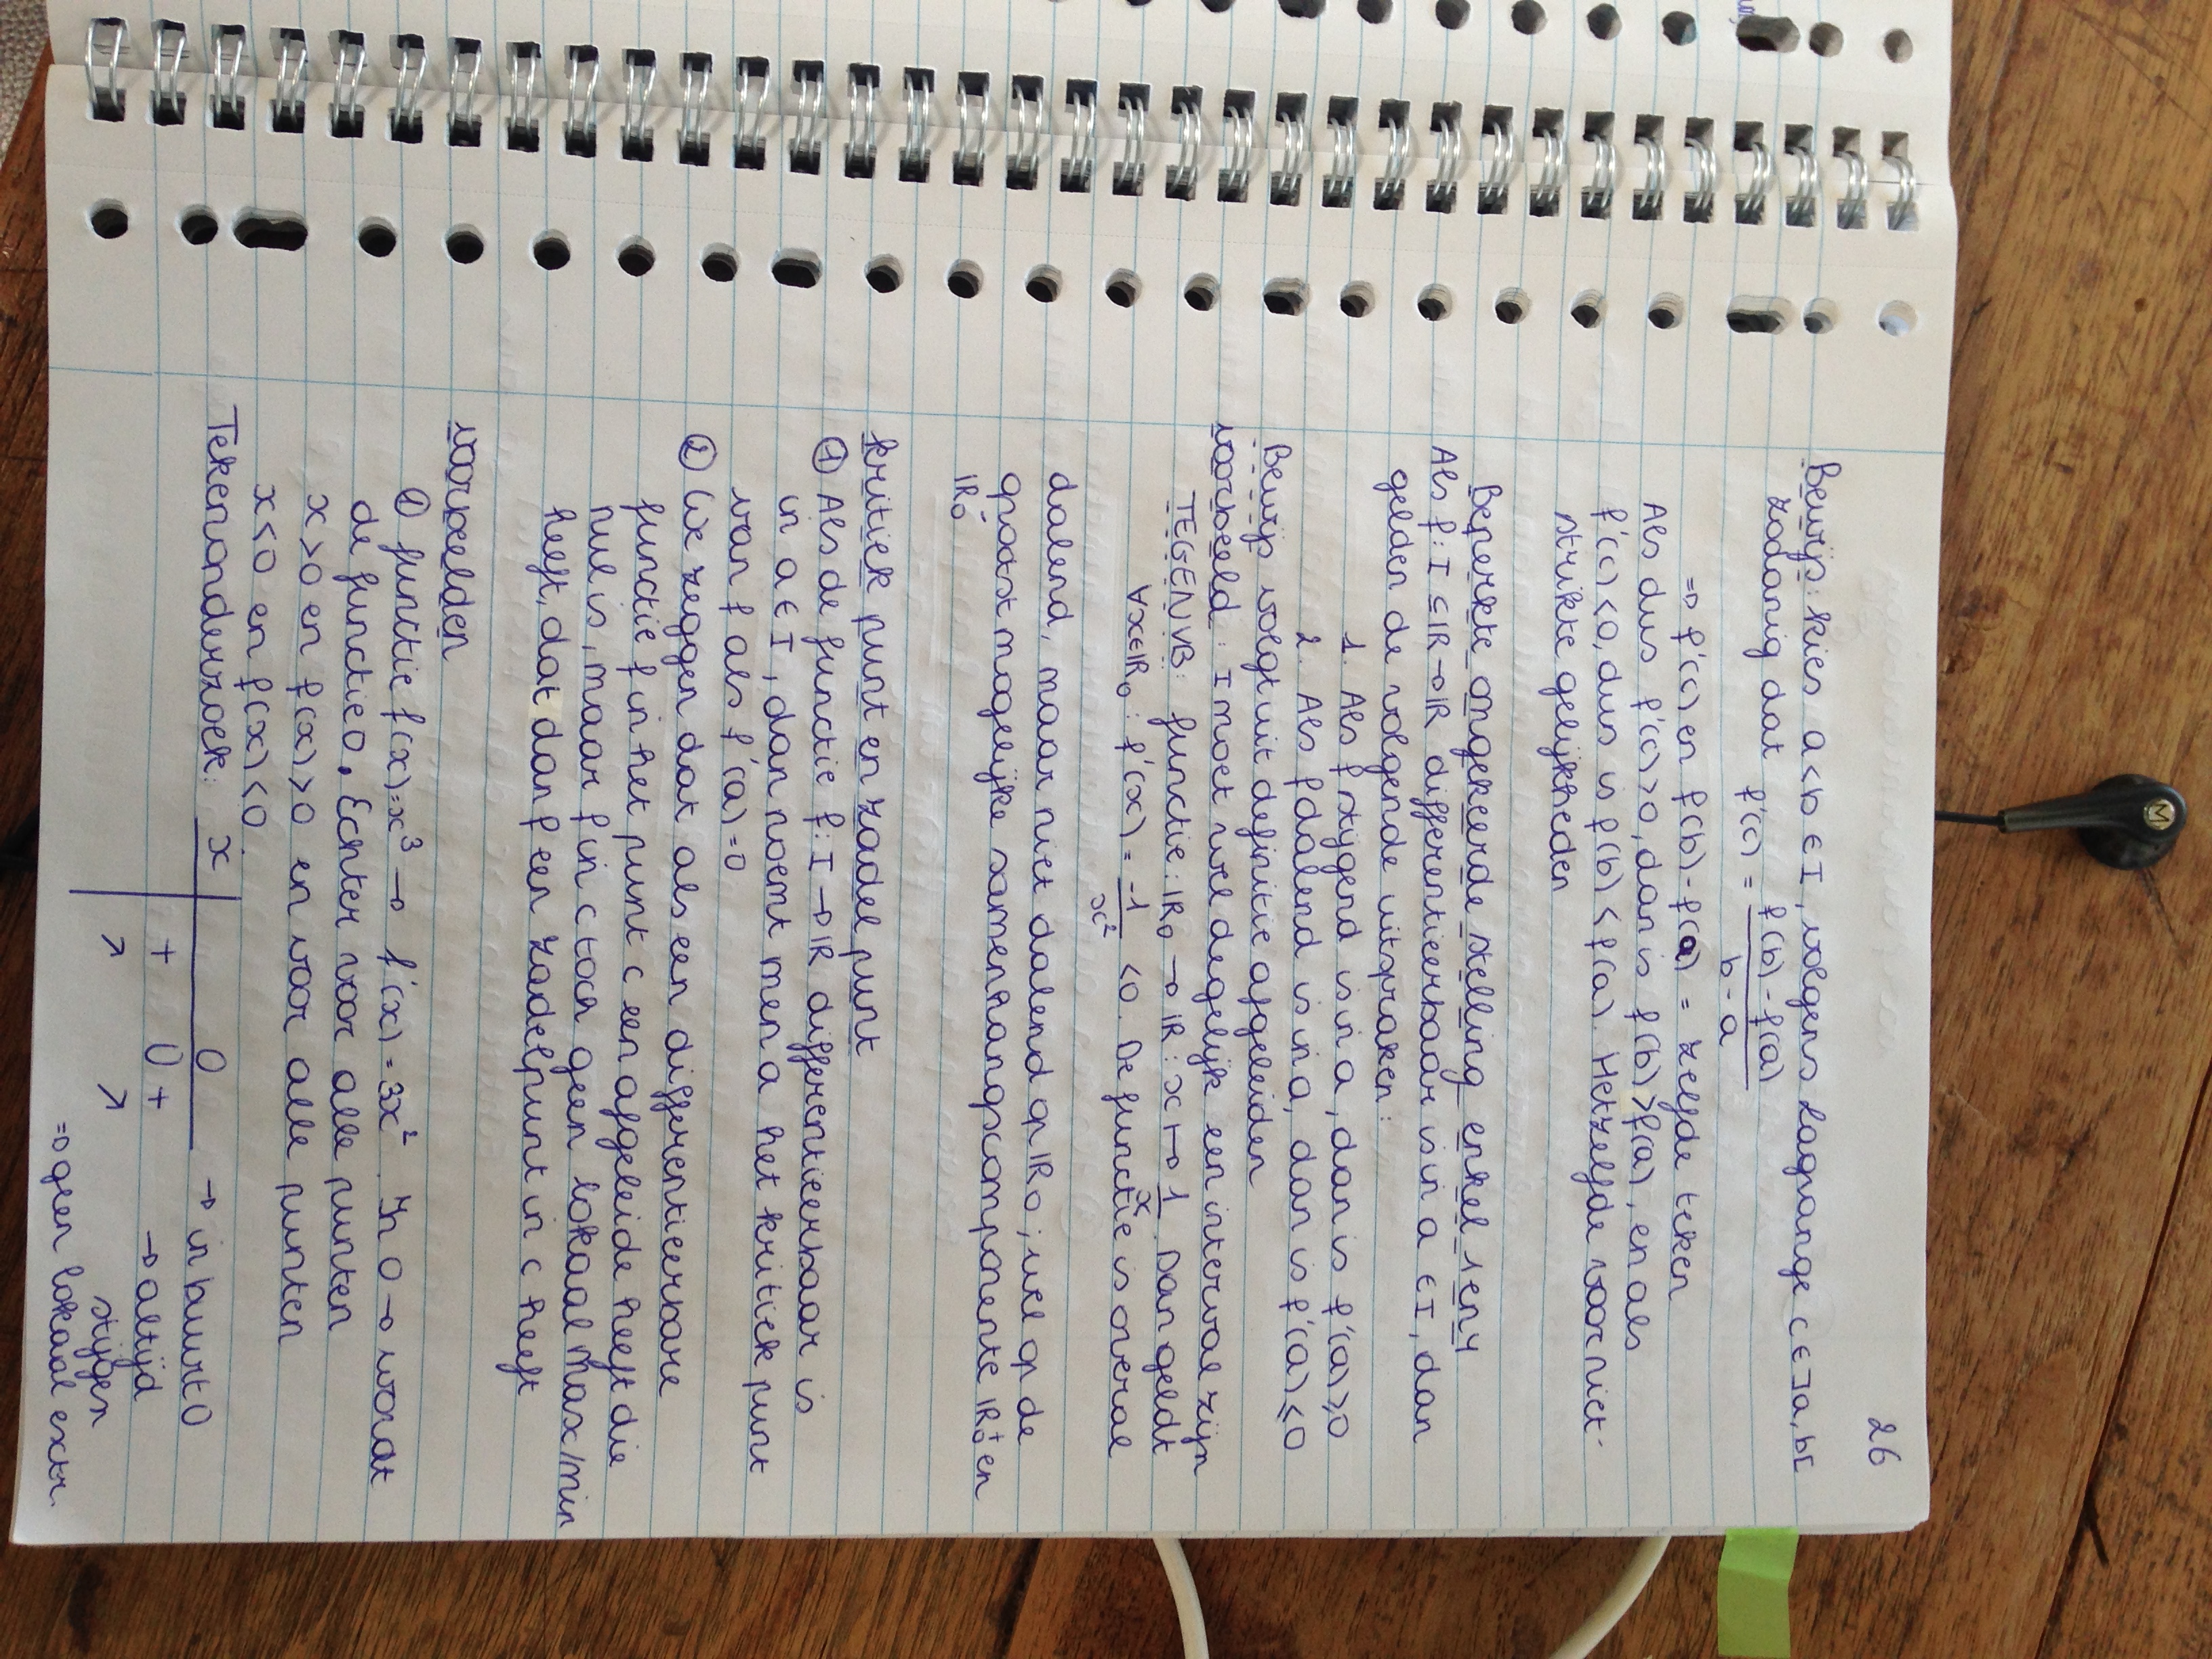 M
26
Bewijs: kies a<b ∈ I, volgens Lagrange c ∈ ]a, b[
zodanig dat f'(c) = f(b) - f(a) / b - a
⇒ f'(c) en f(b) - f(a) = zelfde teken
Als dus f'(c)>0, dan is f(b)>f(a), en als
f'(c)<0, dus is f(b)<f(a). Hetzelfde voor niet-
strikte gelijkheden
Beperkte omgekeerde stelling enkel 1 en 4
Als f: I ⊆ ℝ → ℝ differentieerbaar is in a ∈ I, dan
gelden de volgende uitspraken:
1. Als f stijgend is in a, dan is f'(a) ≥ 0
2. Als f dalend is in a, dan is f'(a) ≤ 0
Bewijs volgt uit definitie afgeleiden
voorbeeld: I moet wel degelijk een interval zijn
TEGENVB: functie: ℝ₀ → ℝ: x ↦ 1/x. Dan geldt
∀x∈ℝ₀: f'(x) = -1/x² <0. De functie is overal
dalend, maar niet dalend op ℝ₀; wel op de
grootst mogelijke samenhangscomponente ℝ₀⁺ en
ℝ₀⁻
kritiek punt en zadel punt
① Als de functie f: I → ℝ differentieerbaar is
in a ∈ I, dan noemt men a het kritiek punt
van f als f'(a)=0
② We zeggen dat als een differentieerbare
functie f in het punt c een afgeleide heeft die
nul is, maar f in c toch geen lokaal max/min
heeft, dat dan f een zadelpunt in c heeft
voorbeelden
① functie f(x)=x³ → f'(x)=3x². In 0 → wordt
de functie 0. Echter voor alle punten
x>0 en f(x)>0 en voor alle punten
x<0 en f(x)<0.
Tekenonderzoek: x 0 → in buurt 0
+ 0 + → altijd
↗ ↗ stijgen
⇒ geen lokaal extr.